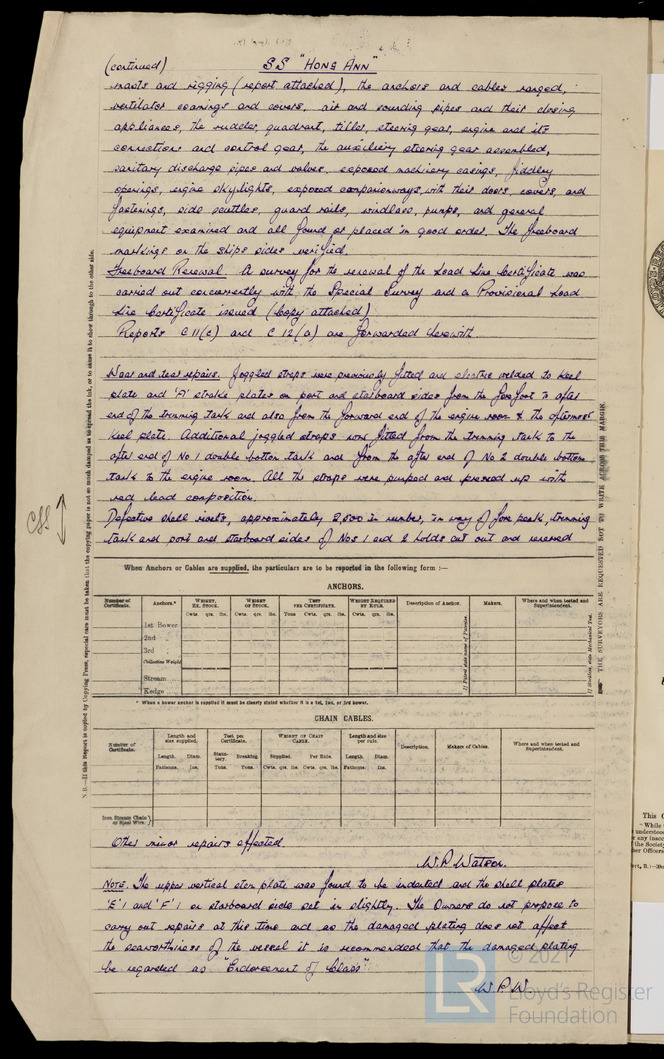 (continued) SS "HONG ANN"
masts and rigging (report attached), the anchors and cables ranged,
ventilator coamings and covers, air and sounding pipes and their closing
appliances, the rudder, quadrant, tiller, steering gear, engine and its
connections and control gear, the auxiliary steering gear assembled,
sanitary discharge pipes and valves, exposed machinery casings, fiddley
openings, engine skylights, exposed companionways, with their doors, covers, and
fastenings, side scuttles, guard rails, windlass, pumps, and general
equipment examined and all found or placed in good order. The freeboard
markings on the ships sides verified.
Freeboard Renewal. A survey for the renewal of the Load Line Certificate was
carried out concurrently with the Special Survey and a Provisional Load
Line Certificate issued (Copy attached)
Reports C11(c) and C12(a) are forwarded herewith.
Wear and tear repairs. Joggled straps were previously fitted and electric welded to keel
plate and 'A' strake plates on port and starboard sides from the forefoot to after
end of the trimming tank and also from the forward end of the engine room to the aftermost
keel plate. Additional joggled straps were fitted from the trimming tank to the
after end of No 1 double bottom tank and from the after end of No 2 double bottom
tank to the engine room. All the straps were pumped and pressed up with
red lead composition.
Defective shell rivets, approximately 2,500 in number, in way of fore peak, trimming
tank and port and starboard sides of Nos 1 and 2 holds cut out and renewed
When Anchors or Cables are supplied, the particulars are to be reported in the following form :—
ANCHORS.
Number of Certificate. Anchors.* WEIGHT, EX. STOCK. WEIGHT OF STOCK. TEST PER CERTIFICATE. WEIGHT REQUIRED BY RULE. Description of Anchor. Makers. Where and when tested and Superintendent.
Cwts. qrs. lbs. Cwts. qrs. lbs. Tons Cwts. qrs. lbs. Cwts. qrs. lbs.
1st Bower
2nd "
3rd "
Collective Weight
Stream
Kedge
If Patent state name of Patentee.
* When a bower anchor is supplied it must be clearly stated whether it is a 1st, 2nd, or 3rd bower.
CHAIN CABLES.
Number of Certificate. Length and size supplied. Test per Certificate. WEIGHT OF CHAIN CABLE. Length and size per rule. Description. Makers of Cables. Where and when tested and Superintendent.
Length. Diam. Statutory. Breaking. Supplied. Per Rule. Length. Diam.
Fathoms. Ins. Tons. Tons. Cwts. qrs. lbs. Cwts. qrs. lbs. Fathoms. Ins.
Iron Stream Chain or Steel Wire
Other minor repairs effected.
W.P. Watson.
NOTE. The upper vertical stem plate was found to be indented and the shell plates
'E' 1 and 'F' 1 on starboard side set in slightly. The Owners do not propose to
carry out repairs at this time and as the damaged plating does not affect
the seaworthiness of the vessel it is recommended that the damaged plating
be regarded as "Endorsement of Class"
W.P.W.
N.B.—If this Report is copied by Copying Press, especial care must be taken that the copying paper is not so much damped as to spread the ink, or to cause it to show through to the other side.
THE SURVEYORS ARE REQUESTED NOT TO WRITE ACROSS THIS MARGIN.
LR
© 2021
Lloyd's Register
Foundation